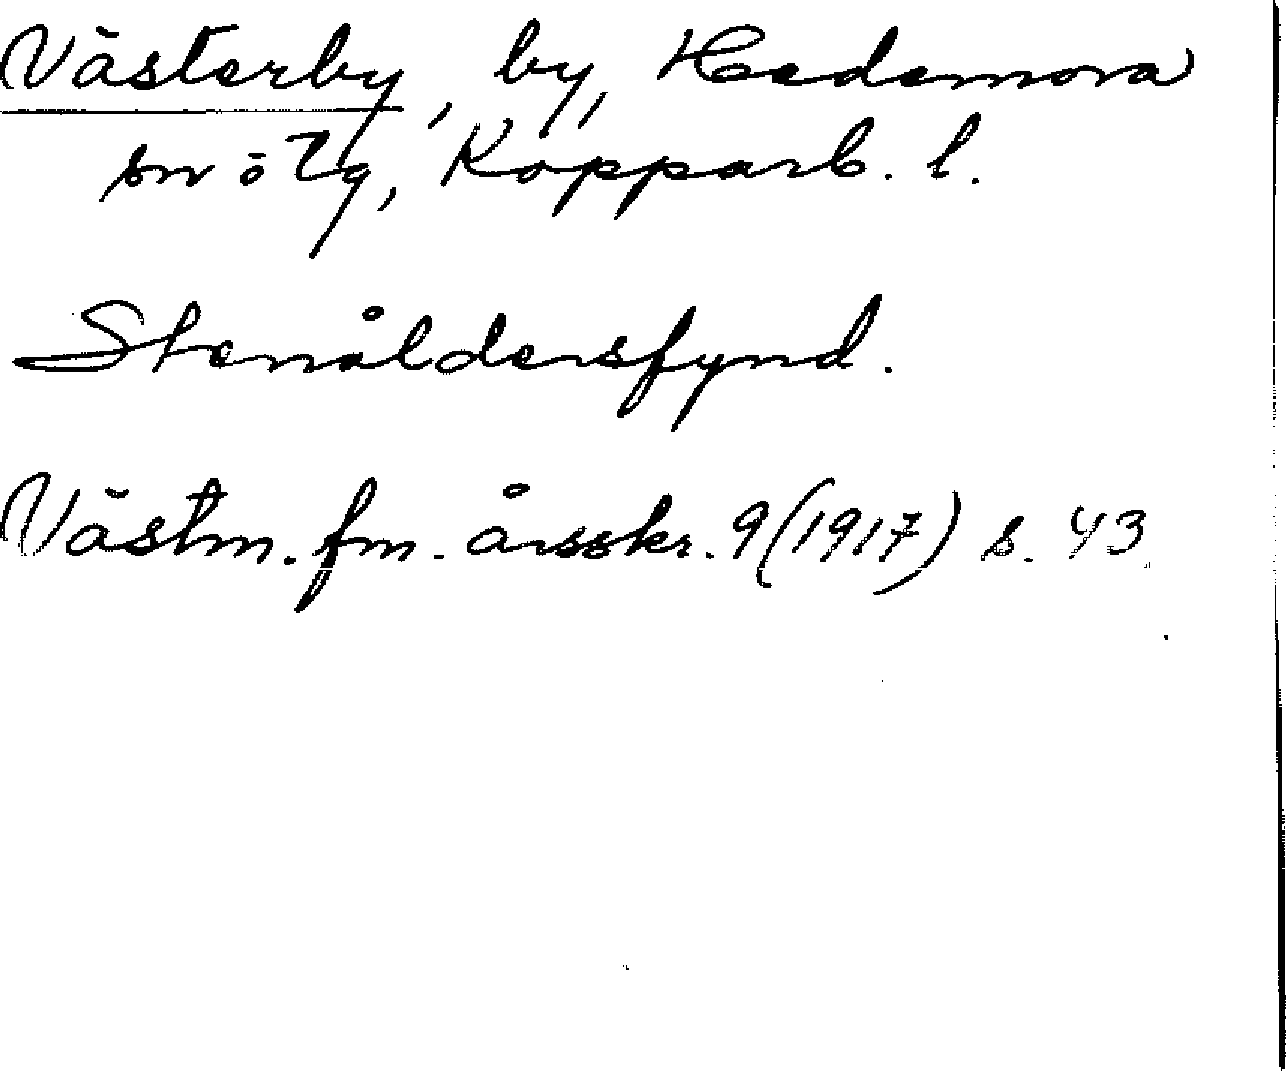 Västerby, by, Hedemora
sn o Tg, Kopparb. l.
Stenåldersfynd.
Västm. fm. årsskr. 9 (1917) s. 43